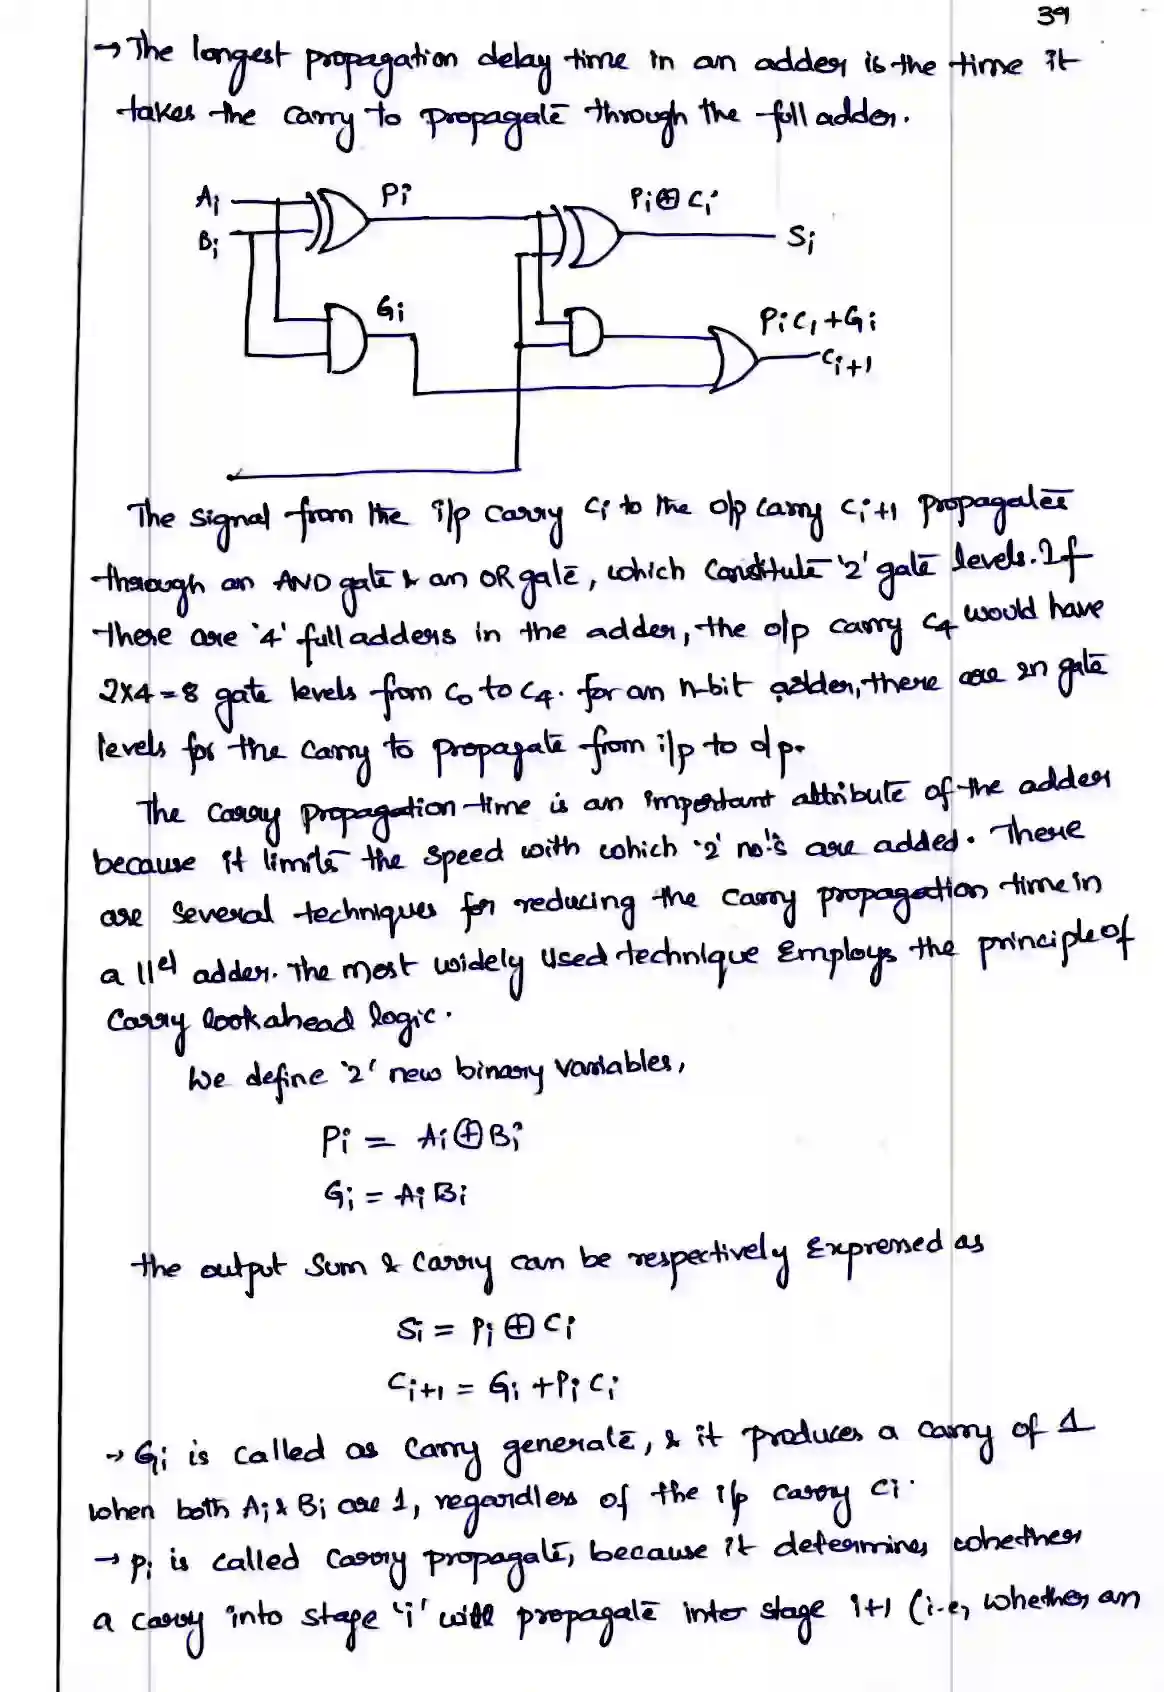 39
→ The longest propagation delay time in an adder is the time it
takes the carry to propagate through the full adder.
Ai
Bi
Pi
Pi⊕Ci
Si
Gi
PiCi+Gi
Ci+1
The signal from the i/p carry Ci to the o/p carry Ci+1 propagates
through an AND gate & an OR gate, which constitute '2' gate levels. If
there are '4' full adders in the adder, the o/p carry C4 would have
2x4=8 gate levels from C0 to C4. for an n-bit adder, there are 2n gate
levels for the carry to propagate from i/p to o/p.
The carry propagation time is an important attribute of the adder
because it limits the speed with which '2' no.'s are added. There
are several techniques for reducing the carry propagation time in
a llel adder. The most widely used technique Employs the principle of
carry look ahead logic.
We define '2' new binary variables,
Pi = Ai⊕Bi
Gi = AiBi
the output sum & carry can be respectively Expressed as
Si = Pi⊕Ci
Ci+1 = Gi+PiCi
→ Gi is called as carry generate, & it produces a carry of 1
when both Ai & Bi are 1, regardless of the i/p carry Ci.
→ Pi is called carry propagate, because it determines whether
a carry into stage 'i' will propagate into stage i+1 (i.e, whether an